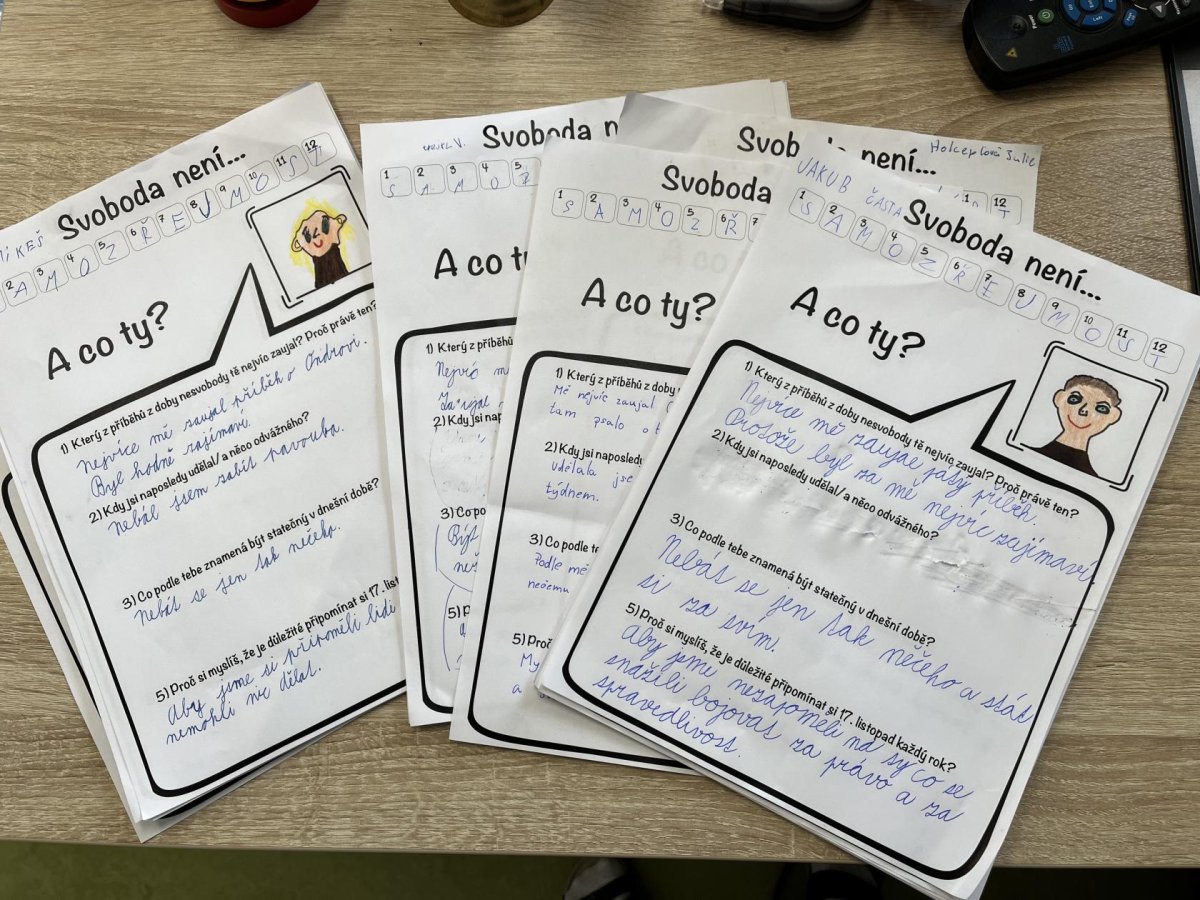 MIKEŠ
Svoboda není...
2 A 3 M 4 O 5 Z 6 Ř 7 E 8 J 9 M 10 O 11 S 12 T
A co ty?
1) Který z příběhů z doby nesvobody tě nejvíc zaujal? Proč právě ten?
Nejvíce mě zaujal příběh o Ondrovi.
Byl hodně zajímavé.
2) Kdy jsi naposledy udělal/ a něco odvážného?
Nebál jsem zabít pavouka.
3) Co podle tebe znamená být statečný v dnešní době?
Nebát se jen tak něčeho.
5) Proč si myslíš, že je důležité připomínat si 17. list
Aby jsme si připoměli lidi
nemohli nic dělat.
V.
Svoboda n
1 S 2 A 3 M 4 O 5 Z
A co t
1) Který z příběh
Nejvíc m
2) Kdy jsi nap
3) Co po
Být
5) P
Svoboda není...
Holceplová Julie
12 T
Svoboda
1 S 2 A 3 M 4 O 5 Z 6 Ř 7
A co ty?
1) Který z příběhů z doby
Mě nejvíc zaujal
tam psalo o t
2) Kdy jsi naposledy
udělala jse
týdnem.
3) Co podle te
Podle mě
nečemu
5) Proč
My
a
JAKUB ČÁSTA
Svoboda není...
1 S 2 A 3 M 4 O 5 Z 6 Ř 7 E 8 J 9 M 10 O 11 S 12 T
A co ty?
1) Který z příběhů z doby nesvobody tě nejvíc zaujal? Proč právě ten?
Nejvíce mě zaujal pátý příběh.
Protože byl za mě nejvíc zajímaví.
2) Kdy jsi naposledy udělal/ a něco odvážného?
3) Co podle tebe znamená být statečný v dnešní době?
Nebát se jen tak něčeho a stát
si za svím.
5) Proč si myslíš, že je důležité připomínat si 17. listopad každý rok?
Aby jsme nezapoměli na ty co se
snážili bojovat za právo a za
spravedlivost.